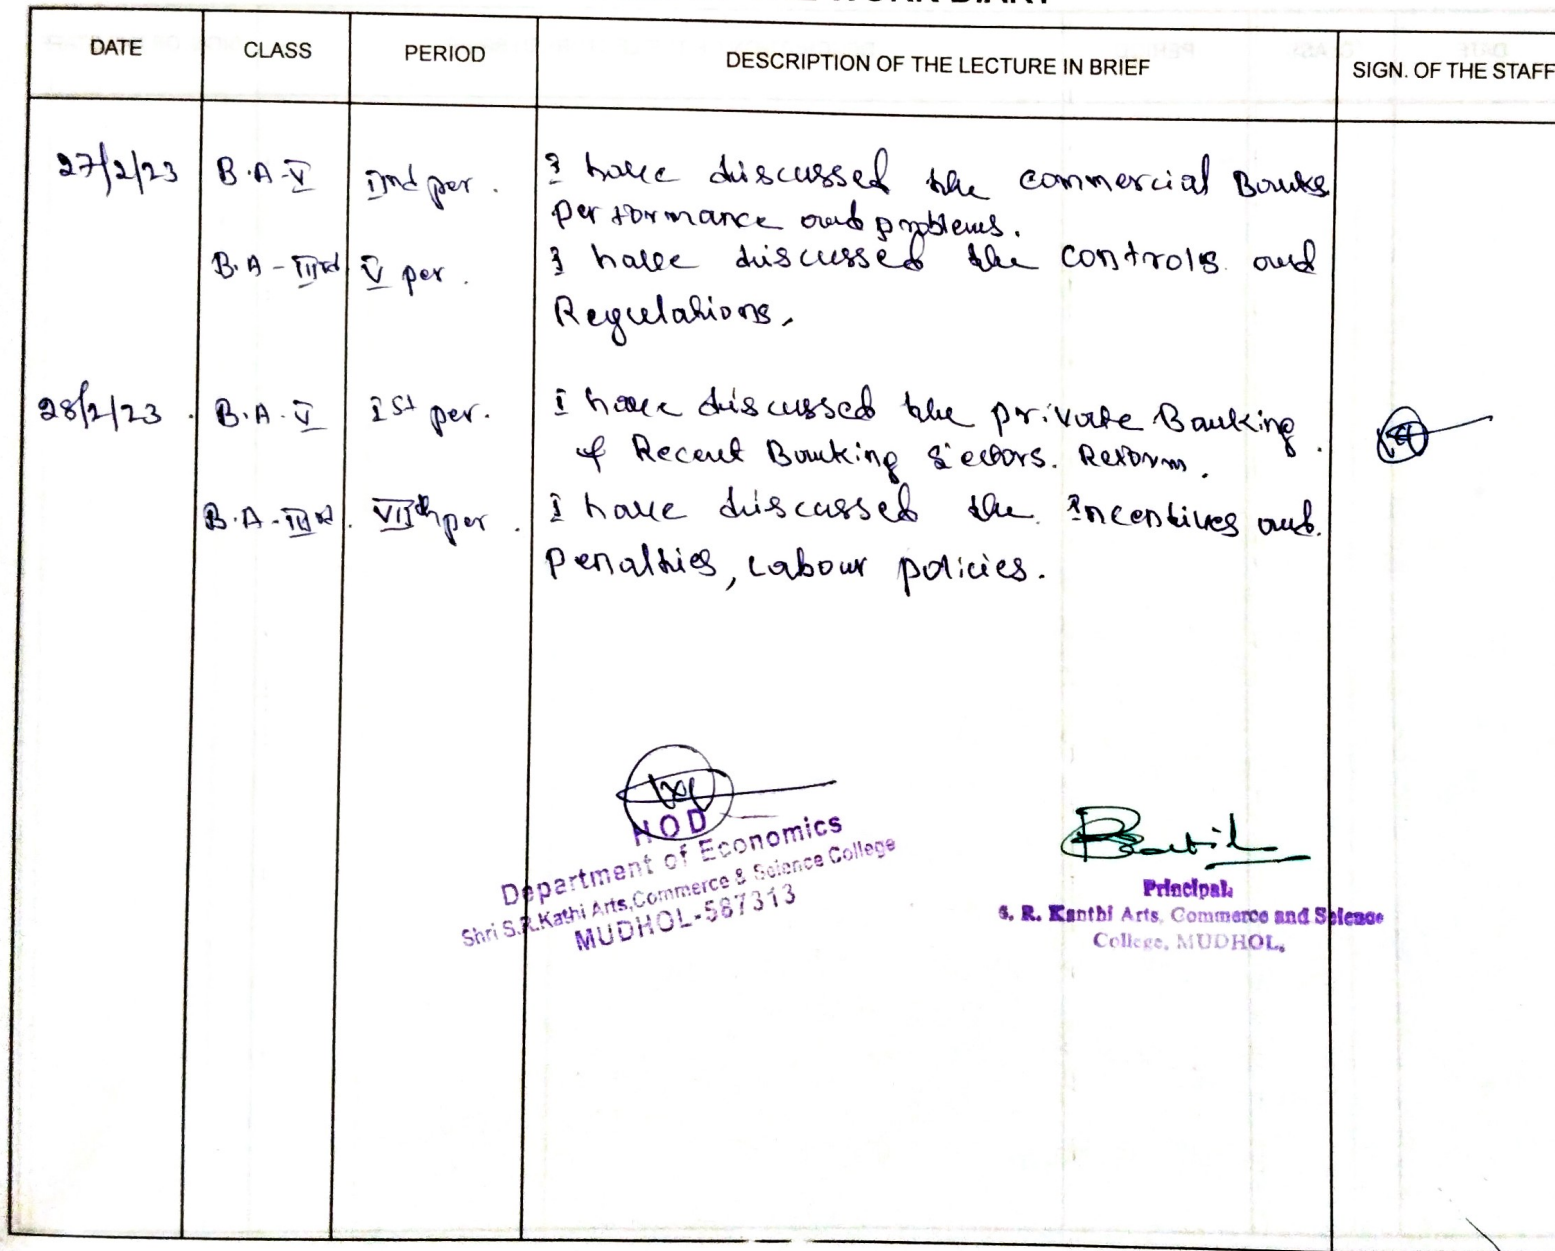 WORK DIARY
DATE CLASS PERIOD DESCRIPTION OF THE LECTURE IN BRIEF SIGN. OF THE STAFF
27/2/23 B.A-V IInd per. I have discussed the commercial Banks
performance and problems.
B.A-IIIrd V per. I have discussed the controls and
Regulations.
28/2/23 B.A-V Ist per. I have discussed the private Banking
of Recent Banking Sectors. Reform.
B.A-IIIrd. VIIth per. I have discussed the Incentives and
Penalties, Labour policies.
HOD
Department of Economics
Shri S.R.Kathi Arts,Commerce & Science College
MUDHOL-587313
Principal.
S. R. Kanthi Arts, Commerce and Science
College, MUDHOL.